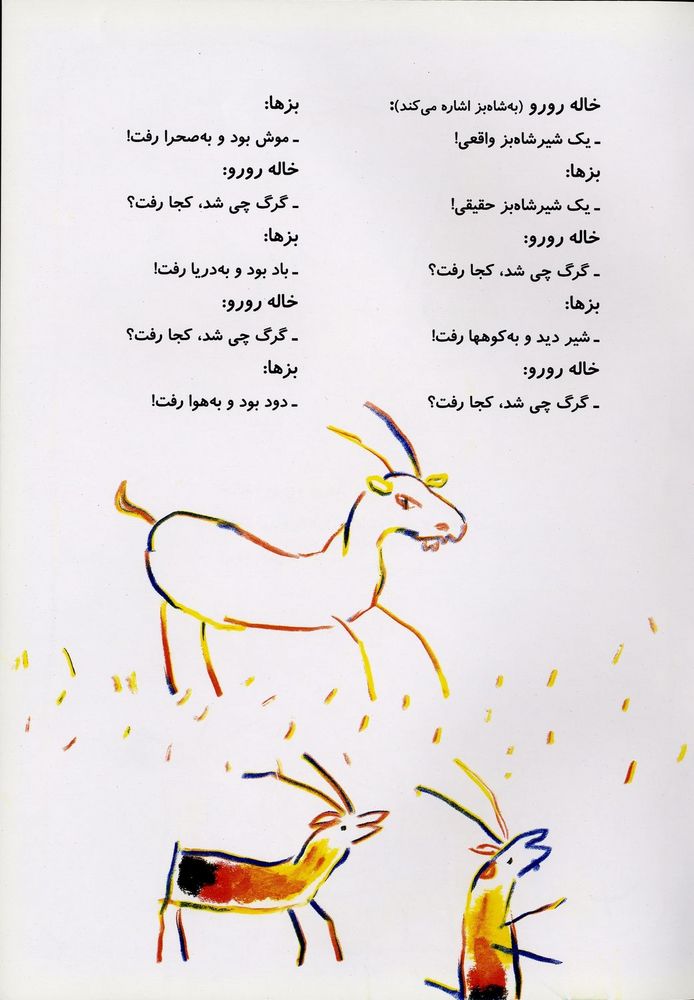 خاله رورو (به‌شاه‌بز اشاره می‌کند):
ـ یک شیرشاه‌بز واقعی!
بزها:
ـ یک شیرشاه‌بز حقیقی!
خاله رورو:
ـ گرگ چی شد، کجا رفت؟
بزها:
ـ شیر دید و به‌کوهها رفت!
خاله رورو:
ـ گرگ چی شد، کجا رفت؟
بزها:
ـ موش بود و به‌صحرا رفت!
خاله رورو:
ـ گرگ چی شد، کجا رفت؟
بزها:
ـ باد بود و به‌دریا رفت!
خاله رورو:
ـ گرگ چی شد، کجا رفت؟
بزها:
ـ دود بود و به‌هوا رفت!